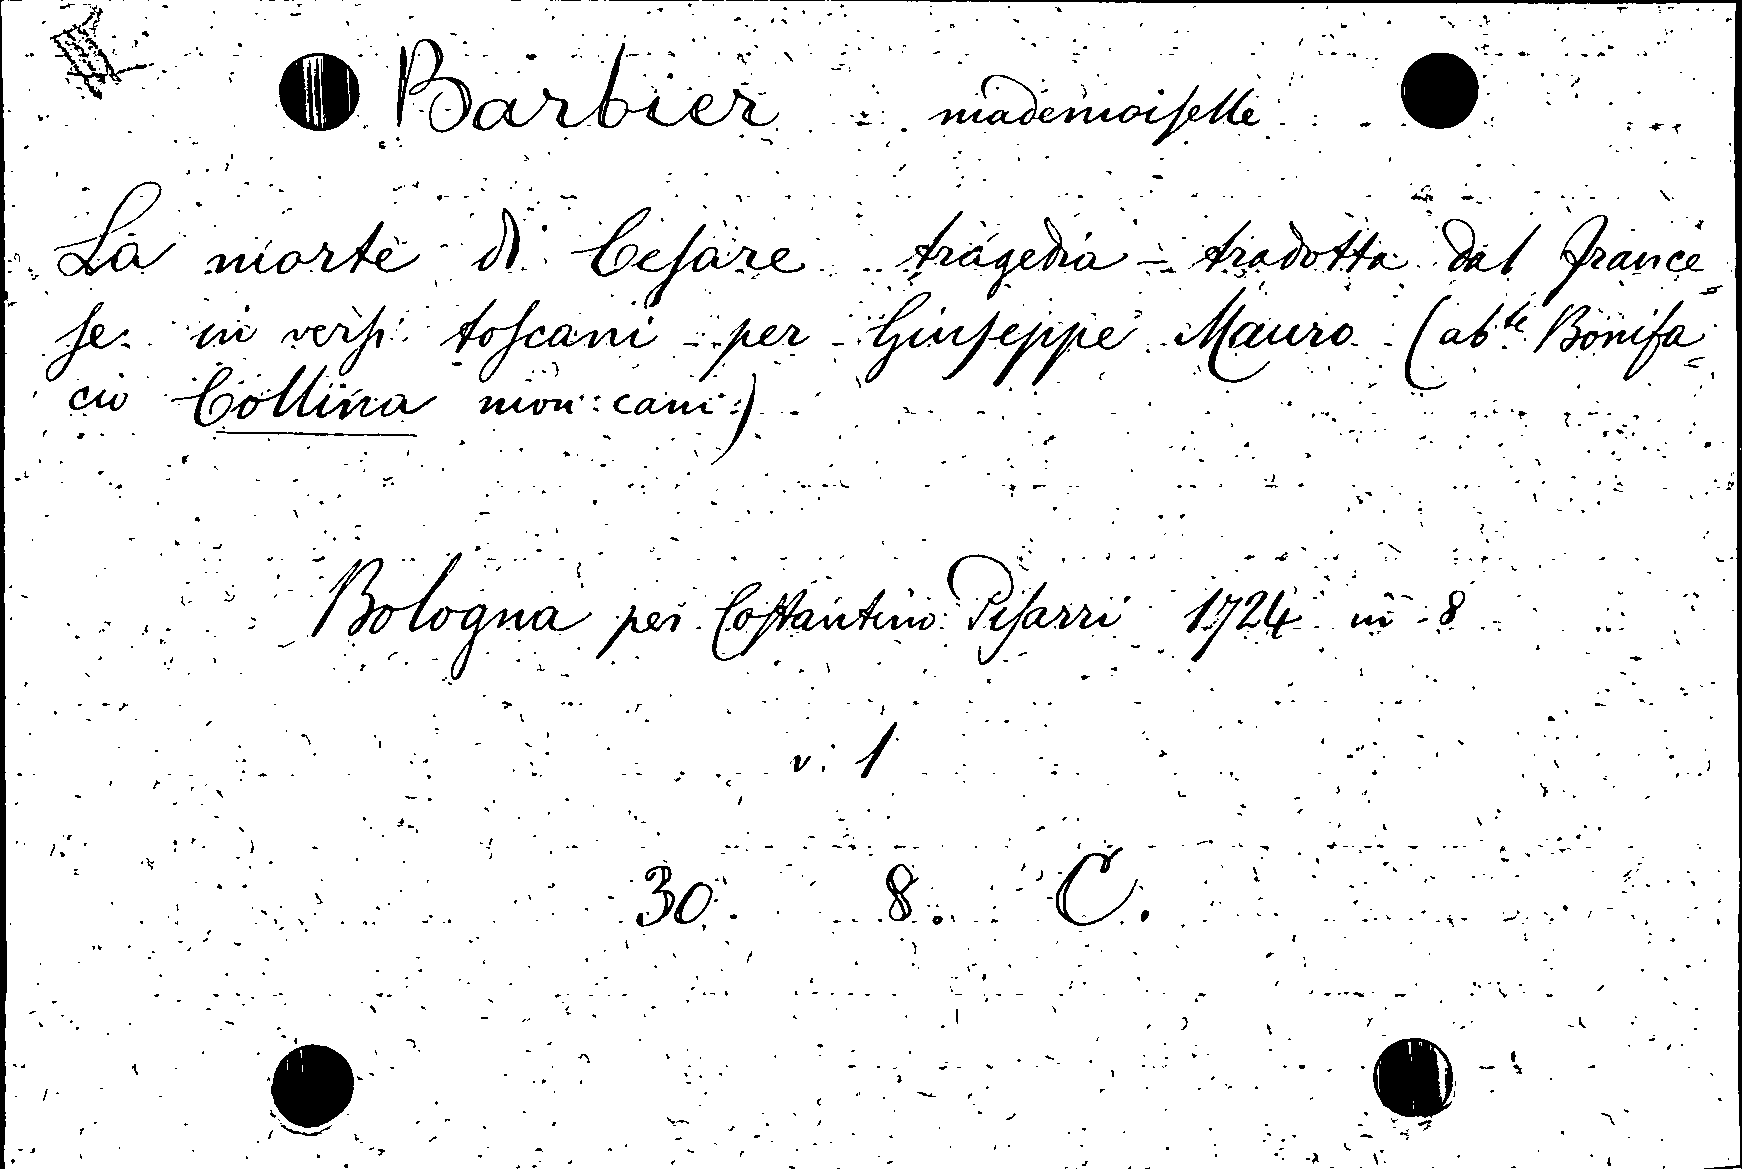 Barbier - mademoiselle
La morte di Cesare tragedia - tradotta dal france=
se in versi toscani per Giuseppe Mauro (ab.te Bonifa=
cio Collina mon: cam:)
Bologna per Costantino Pisarri 1724 in 8
v. 1
30. 8. C.